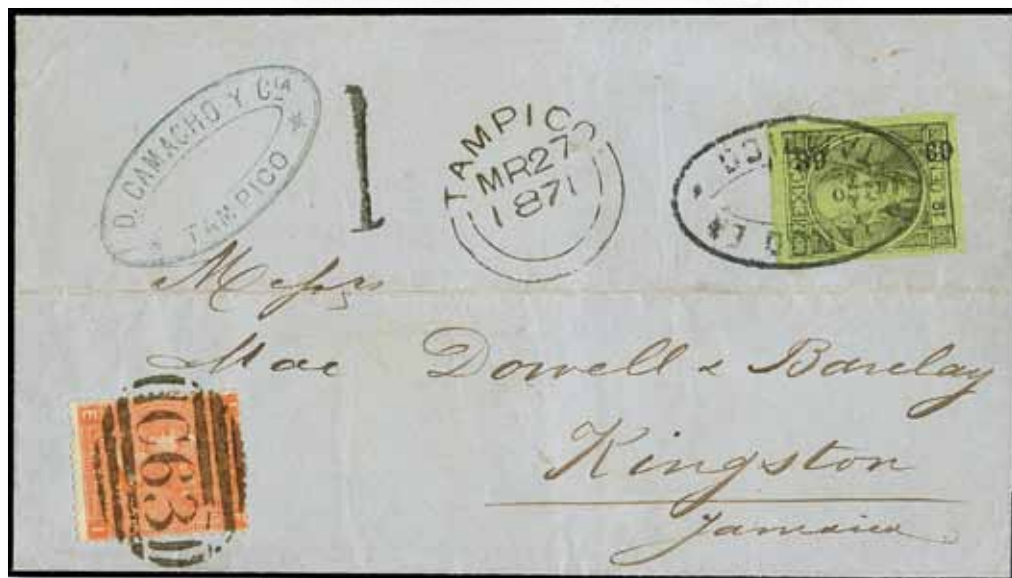 D. CAMACHO Y CIA
TAMPICO
1
TAMPICO
MR 27
1871
60
60
MEXICO
Messrs
Mac Dowell & Barclay
Kingston
Jamaica
C63